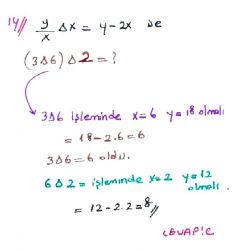 14// y/x Δx = y-2x ise
(3Δ6) Δ2 = ?
3Δ6 işleminde x=6 y=18 olmalı
= 18-2.6 = 6
3Δ6=6 oldu.
6Δ2 = işleminde x=2 y=12
olmalı.
= 12-2.2=8//
CEVAP:C